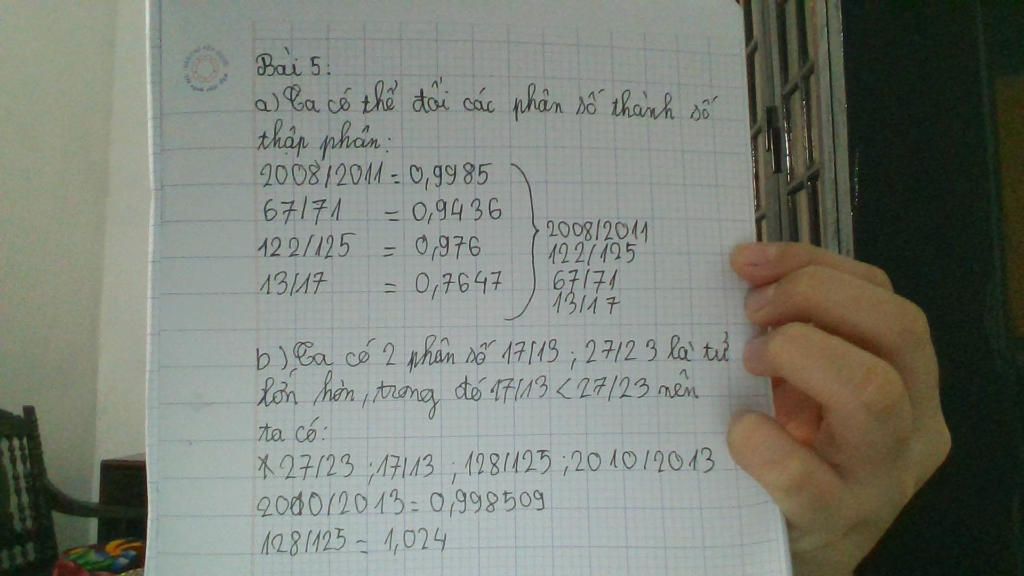 Bài 5:
a) Ta có thể đổi các phân số thành số
thập phân:
2008/2011 = 0,9985
67/71 = 0,9436
122/125 = 0,976
13/17 = 0,7647
2008/2011
122/125
67/71
13/17
b) Ta có 2 phân số 17/13 ; 27/23 là tử
lớn hơn, trong đó 17/13 < 27/23 nên
ta có:
* 27/23 ; 17/13 ; 128/125 ; 2010/2013
2010/2013 = 0,998509
128/125 = 1,024